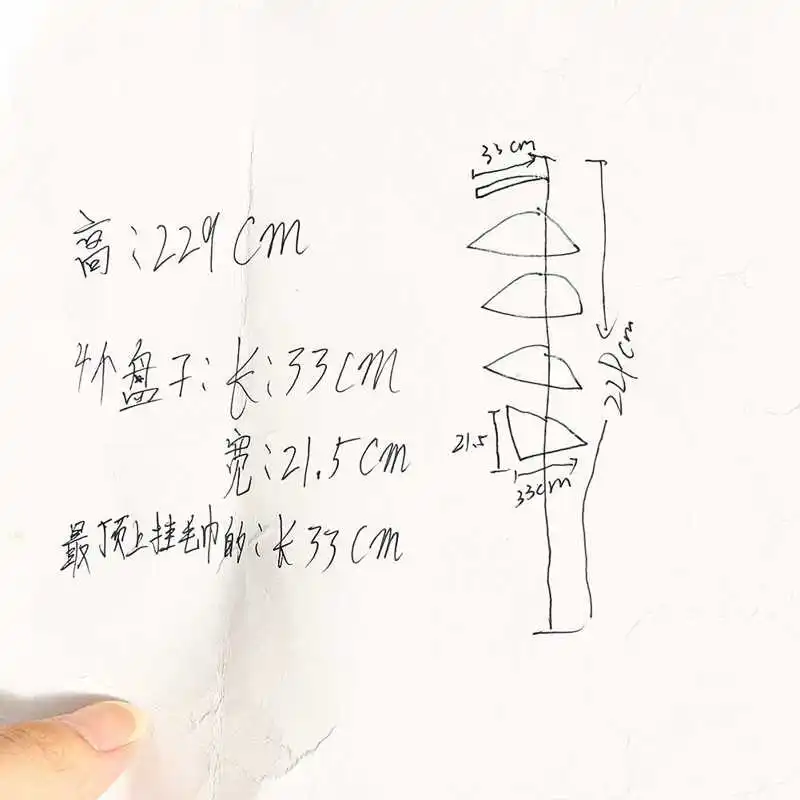 高:229cm
4个盘子:长:33cm
宽:21.5cm
最顶上挂毛巾的:长33cm
33cm
229cm
21.5
33cm